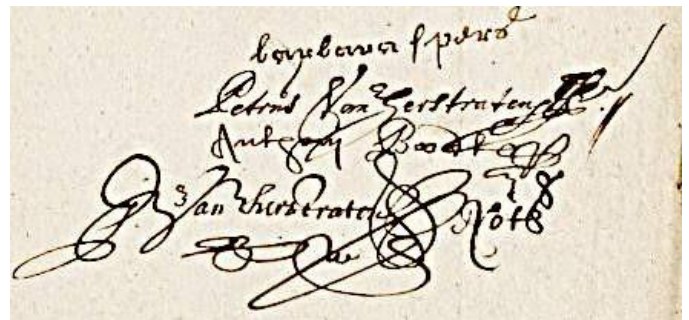 barbara spers
Petrus Van Herstraten
Anthony Boott
J Van Herstraten
Nots